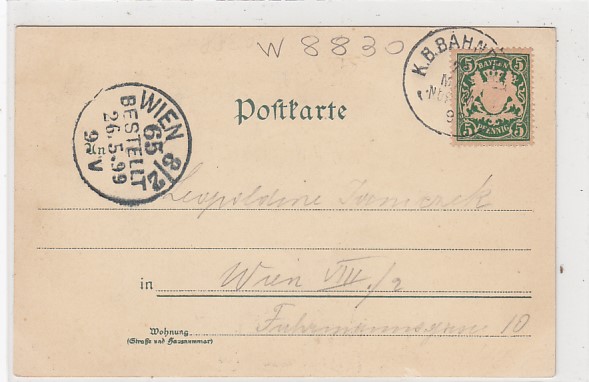 W 8830
K.B.BAHNP
BAYERN
5 5
5 PFENNIG 5
Postkarte
WIEN 8/2
65
BESTELLT
26.5.99
9 V
Leopoldine
in Wien VIII./2
Fuhrmannsgasse 10
Wohnung
(Straße und Hausnummer)